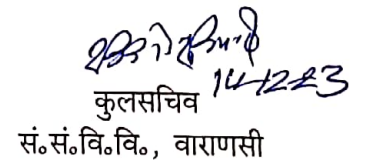 14-12-23
कुलसचिव
सं०सं०वि०वि०, वाराणसी